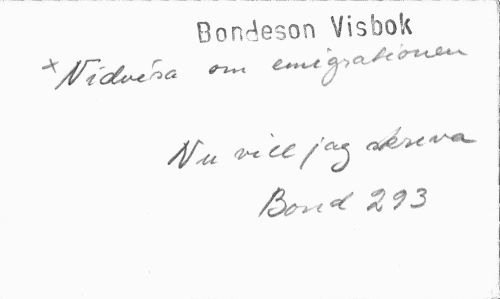 Bondeson Visbok
x Nidvisa om emigrationen
Nu vill jag skreva
Bond 293